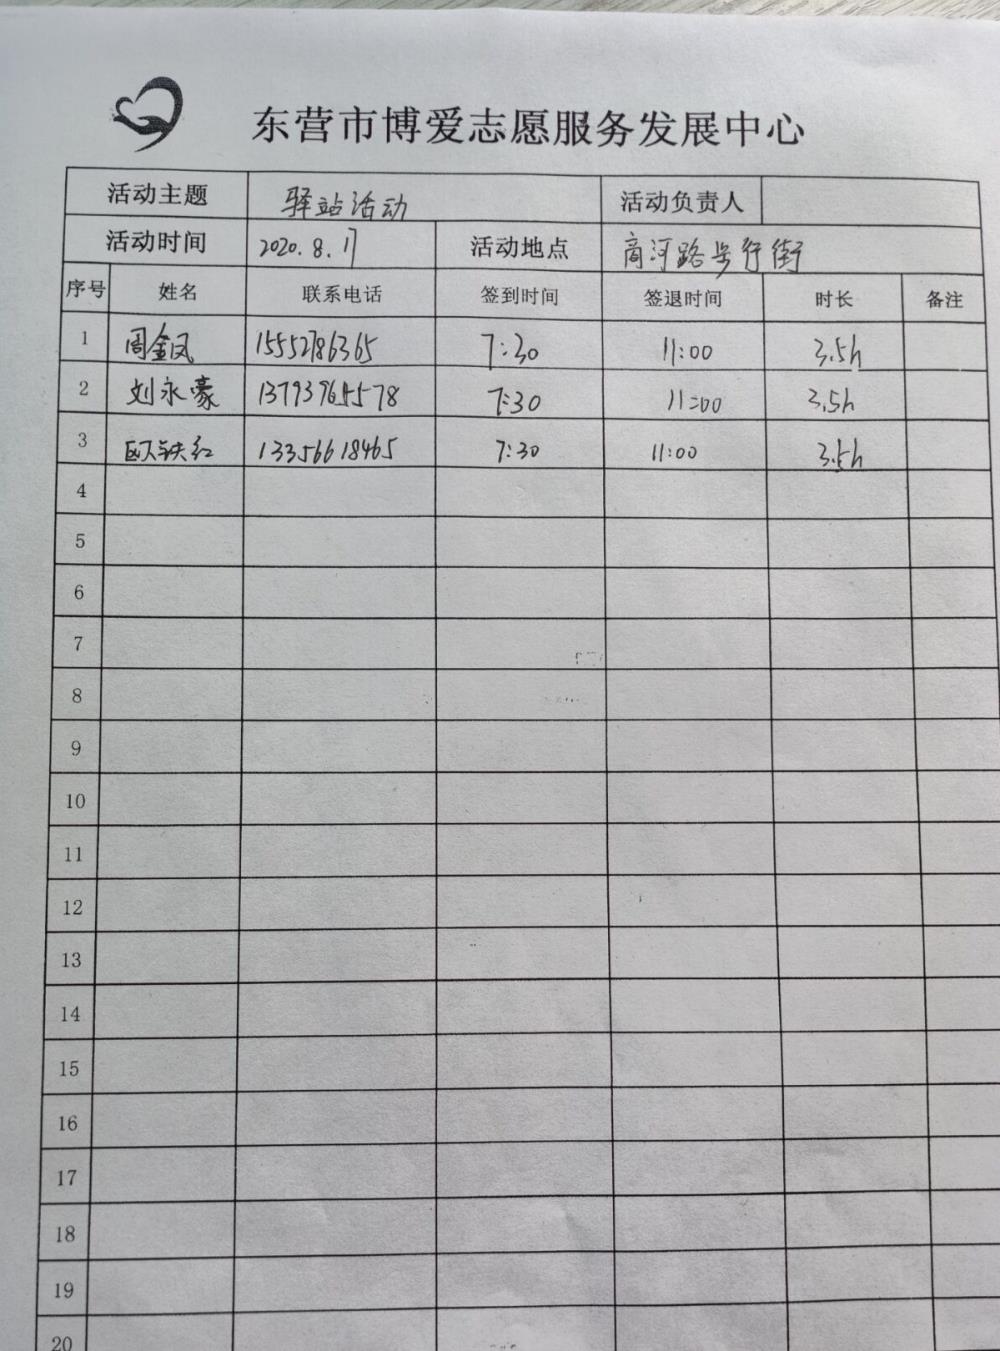 东营市博爱志愿服务发展中心
活动主题 驿站活动 活动负责人
活动时间 2020.8.17 活动地点 商河路步行街
序号 姓名 联系电话 签到时间 签退时间 时长 备注
1 周金凤 15552786365 7:30 11:00 3.5h
2 刘永豪 13793965578 7:30 11:00 3.5h
3 欧铁红 13356618465 7:30 11:00 3.5h
4
5
6
7
8
9
10
11
12
13
14
15
16
17
18
19
20